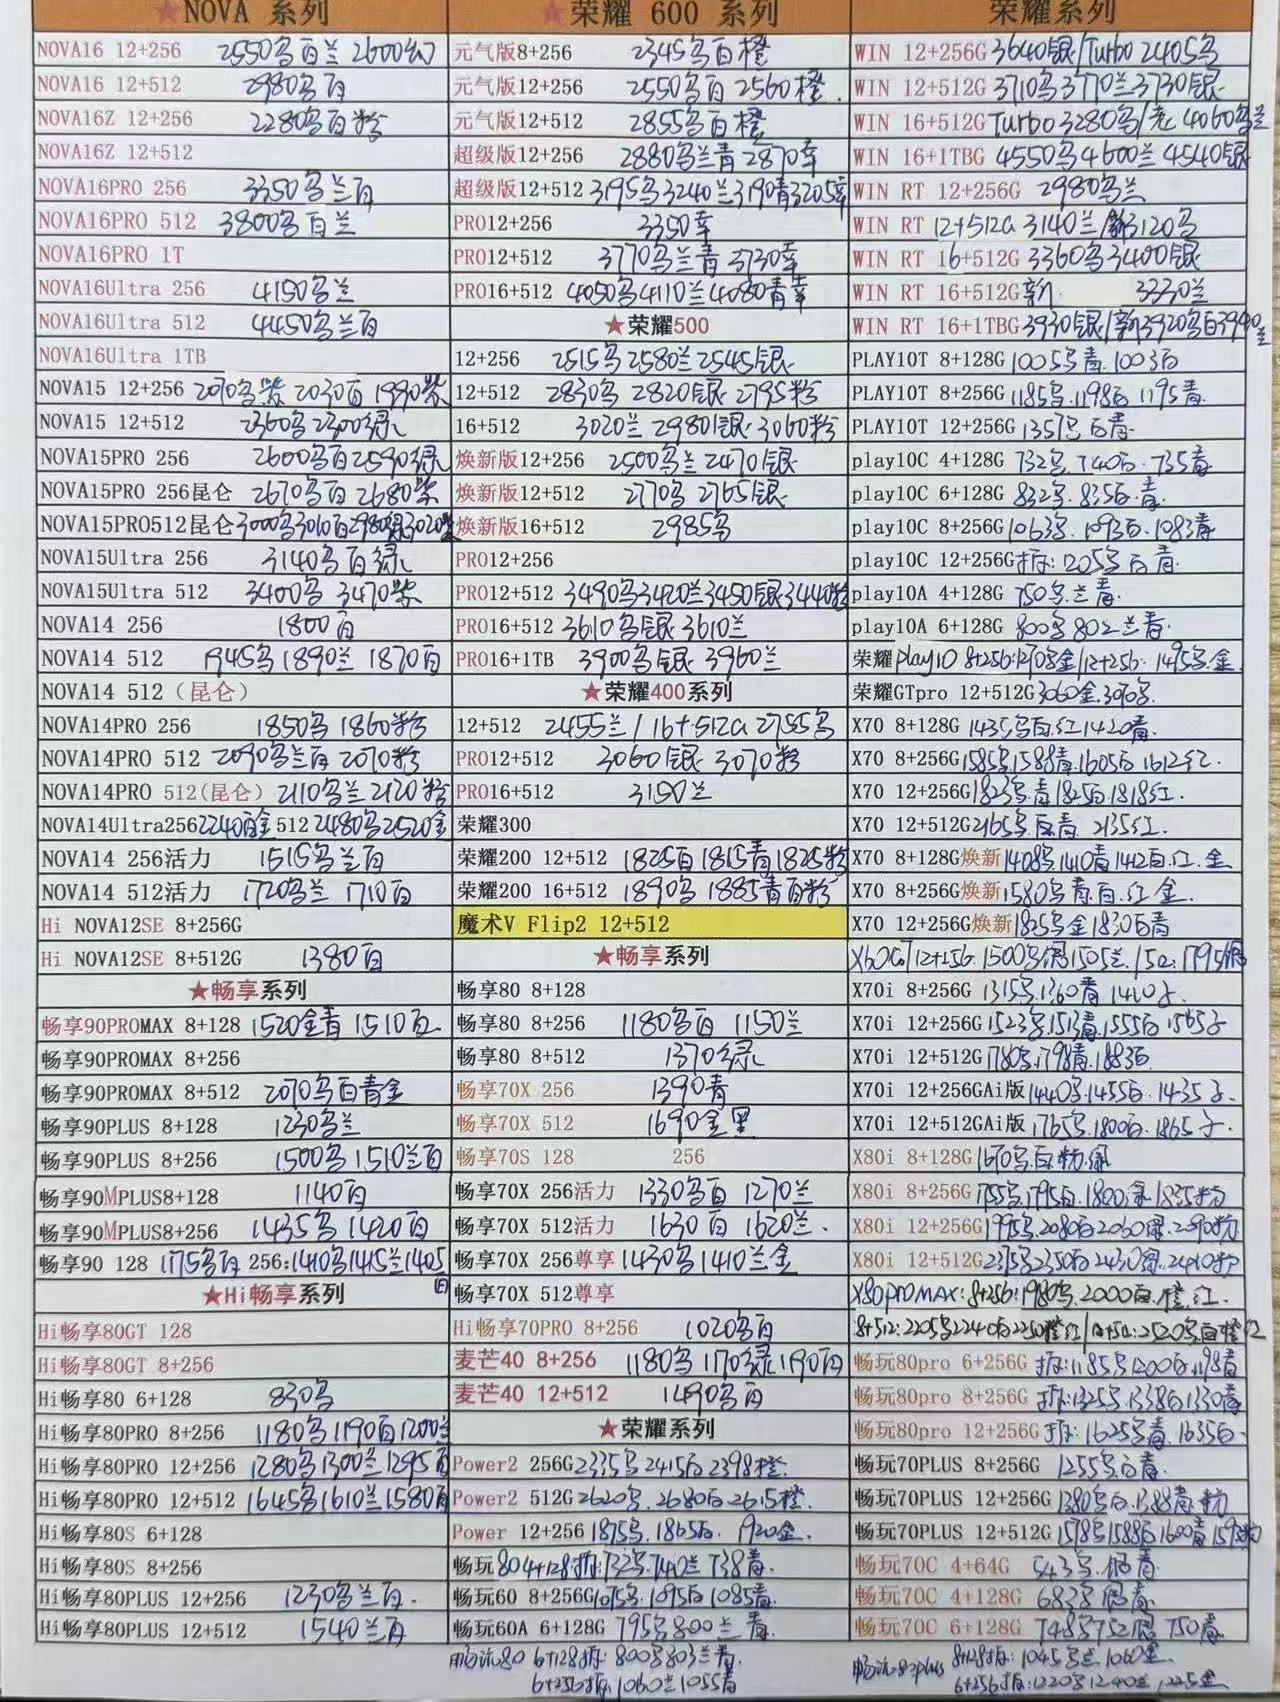 ★NOVA 系列
NOVA16 12+256 2550乌白兰 2600幻
NOVA16 12+512 2980乌白
NOVA16Z 12+256 2280乌百粉
NOVA16Z 12+512
NOVA16PRO 256 3350乌兰百
NOVA16PRO 512 3800乌百兰
NOVA16PRO 1T
NOVA16Ultra 256 4150乌兰
NOVA16Ultra 512 4450乌兰百
NOVA16Ultra 1TB
NOVA15 12+256 2070乌紫 2030百 1990紫
NOVA15 12+512 2360乌2300绿
NOVA15PRO 256 2600乌百2590绿
NOVA15PRO 256昆仑 2670乌百2680紫
NOVA15PRO512昆仑 3000乌3010百2980绿3020紫
NOVA15Ultra 256 3140乌百绿
NOVA15Ultra 512 3400乌 3470紫
NOVA14 256 1800百
NOVA14 512 1945乌1890兰 1870百
NOVA14 512（昆仑）
NOVA14PRO 256 1850乌 1860粉
NOVA14PRO 512 2090乌兰百 2070粉
NOVA14PRO 512(昆仑) 2110乌兰2120粉
NOVA14Ultra256 2240百金 512 2480乌2520金
NOVA14 256活力 1515乌兰百
NOVA14 512活力 1720乌兰 1710百
Hi NOVA12SE 8+256G
Hi NOVA12SE 8+512G 1380百
★畅享系列
畅享90PROMAX 8+128 1520金青 1510百
畅享90PROMAX 8+256
畅享90PROMAX 8+512 2070乌百青金
畅享90PLUS 8+128 1230乌兰
畅享90PLUS 8+256 1500乌 1510兰百
畅享90MPLUS8+128 1140百
畅享90MPLUS8+256 1435乌 1420百
畅享90 128 1175乌百 256:1410乌1415兰1405百
★Hi畅享系列
Hi畅享80GT 128
Hi畅享80GT 8+256
Hi畅享80 6+128 830乌
Hi畅享80PRO 8+256 1180乌1190百1200兰
Hi畅享80PRO 12+256 1280乌1300兰1295百
Hi畅享80PRO 12+512 1645乌1610兰1580百
Hi畅享80S 6+128
Hi畅享80S 8+256
Hi畅享80PLUS 12+256 1230乌兰百.
Hi畅享80PLUS 12+512 1540兰百
★荣耀 600 系列
元气版8+256 2345乌百橙
元气版12+256 2550乌百 2560橙
元气版12+512 2855乌百橙
超级版12+256 2880乌兰青 2870幸
超级版12+512 3195乌3240兰3190青3205幸
PRO12+256 3350幸
PRO12+512 3770乌兰青 3730幸
PRO16+512 4050乌4110兰4080青幸
★荣耀500
12+256 2515乌 2580兰 2545银
12+512 2830乌 2820银 2795粉
16+512 3020兰 2980银 3060粉
焕新版12+256 2500乌兰 2470银
焕新版12+512 2770乌 2765银
焕新版16+512 2985乌
PRO12+256
PRO12+512 3490乌3420兰3450银3440粉
PRO16+512 3610乌银 3610兰
PRO16+1TB 3900乌银 3960兰
★荣耀400系列
12+512 2455兰 / 16+512G 2755乌
PRO12+512 3060银 3070粉
PRO16+512 3150兰
荣耀300
荣耀200 12+512 1825百1815青1825粉
荣耀200 16+512 1890乌 1885青百粉
魔术V Flip2 12+512
★畅享系列
畅享80 8+128
畅享80 8+256 1180乌百 1150兰
畅享80 8+512 1370绿
畅享70X 256 1390青
畅享70X 512 1690金黑
畅享70S 128 256
畅享70X 256活力 1330乌百 1270兰
畅享70X 512活力 1630百 1620兰.
畅享70X 256尊享 1430乌 1410兰金
畅享70X 512尊享
Hi畅享70PRO 8+256 1020乌百
麦芒40 8+256 1180乌 1170绿1190百
麦芒40 12+512 1490乌百
★荣耀系列
Power2 256G 2335乌 2415百 2398橙.
Power2 512G 2620乌.2680百 2615橙.
Power 12+256 1875乌.1865百. 1920金.
畅玩80 4+128折:732乌740兰 738青
畅玩60 8+256G 1075乌.1095百 1085青.
畅玩60A 6+128G 795乌800兰 青.
畅玩80 6+128折:800乌803兰青.
6+256折:1060兰1055青
荣耀系列
WIN 12+256G 3640银/Turbo 2405乌
WIN 12+512G 3710乌3770兰3730银
WIN 16+512G Turbo3280乌/充4060乌兰
WIN 16+1TBG 4550乌4600兰 4540银
WIN RT 12+256G 2980乌兰
WIN RT 12+512G 3140兰/新3120乌
WIN RT 16+512G 3360乌3400银
WIN RT 16+512G新 3330兰
WIN RT 16+1TBG 3930银/新3920乌百3940兰
PLAY10T 8+128G 1005乌青.1003百
PLAY10T 8+256G 1185乌.1198百 1195青.
PLAY10T 12+256G 1357乌百青.
play10C 4+128G 732乌.740百.735青
play10C 6+128G 832乌.835百.青.
play10C 8+256G 1063乌.1093百.1083青
play10C 12+256G折:1205乌百青.
play10A 4+128G 750乌.兰青.
play10A 6+128G 800乌802兰青.
荣耀play10 8+256:1270乌金/12+256:1495乌.金.
荣耀GTpro 12+512G 3060金.3070乌.
X70 8+128G 1435乌百.红1420青.
X70 8+256G 1585乌1588青.1605百1612红.
X70 12+256G 1823乌.青1825百1818红.
X70 12+512G 2165乌.百青. 2155红.
X70 8+128G焕新 1408乌.1410青1412百.红.金
X70 8+256G焕新 1580乌青.百.红.金.
X70 12+256G焕新 1825乌金1830百青
X60GT 12+256.1500乌银1505兰./512:1795银
X70i 8+256G 1315乌.1360青1440子.
X70i 12+256G 1523乌1513青.1555百1565子
X70i 12+512G 1780乌.1798青.1883百.
X70i 12+256GAi版 1440乌.1455百.1435子.
X70i 12+512GAi版 1765乌.1800百.1865子.
X80i 8+128G 1670乌.百.粉.绿
X80i 8+256G 1755乌.1795百.1800绿1835粉
X80i 12+256G 1995乌.2080百2060绿.2090粉
X80i 12+512G 2375乌2350百2430绿.2410粉
X80proMAX:8+256:1980乌.2000百.橙.红.
8+512:2205乌2240百2250橙红/12+512:2520乌百橙红
畅玩80pro 6+256G 折:1185乌1200百.1198青
畅玩80pro 8+256G 折:1325乌1338百1330青
畅玩80pro 12+256G 折:1625乌青.1635百.
畅玩70PLUS 8+256G 1255乌百青.
畅玩70PLUS 12+256G 1380乌百.1388青.粉
畅玩70PLUS 12+512G 1578乌1588百1600青1590粉
畅玩70C 4+64G 543乌.银青.
畅玩70C 4+128G 683乌银青.
畅玩70C 6+128G 748乌752银 750青
畅玩80plus 8+128折:1045乌兰1060金.
6+256折:1220乌1240兰1225金